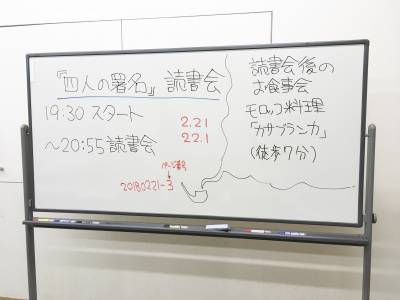 『四人の署名』読書会
19:30 スタート
～20:55 読書会
2.21
22.1
パージ番号
20180221-3
読書会後の
お食事会
モロッコ料理
「カサブランカ」
(徒歩7分)